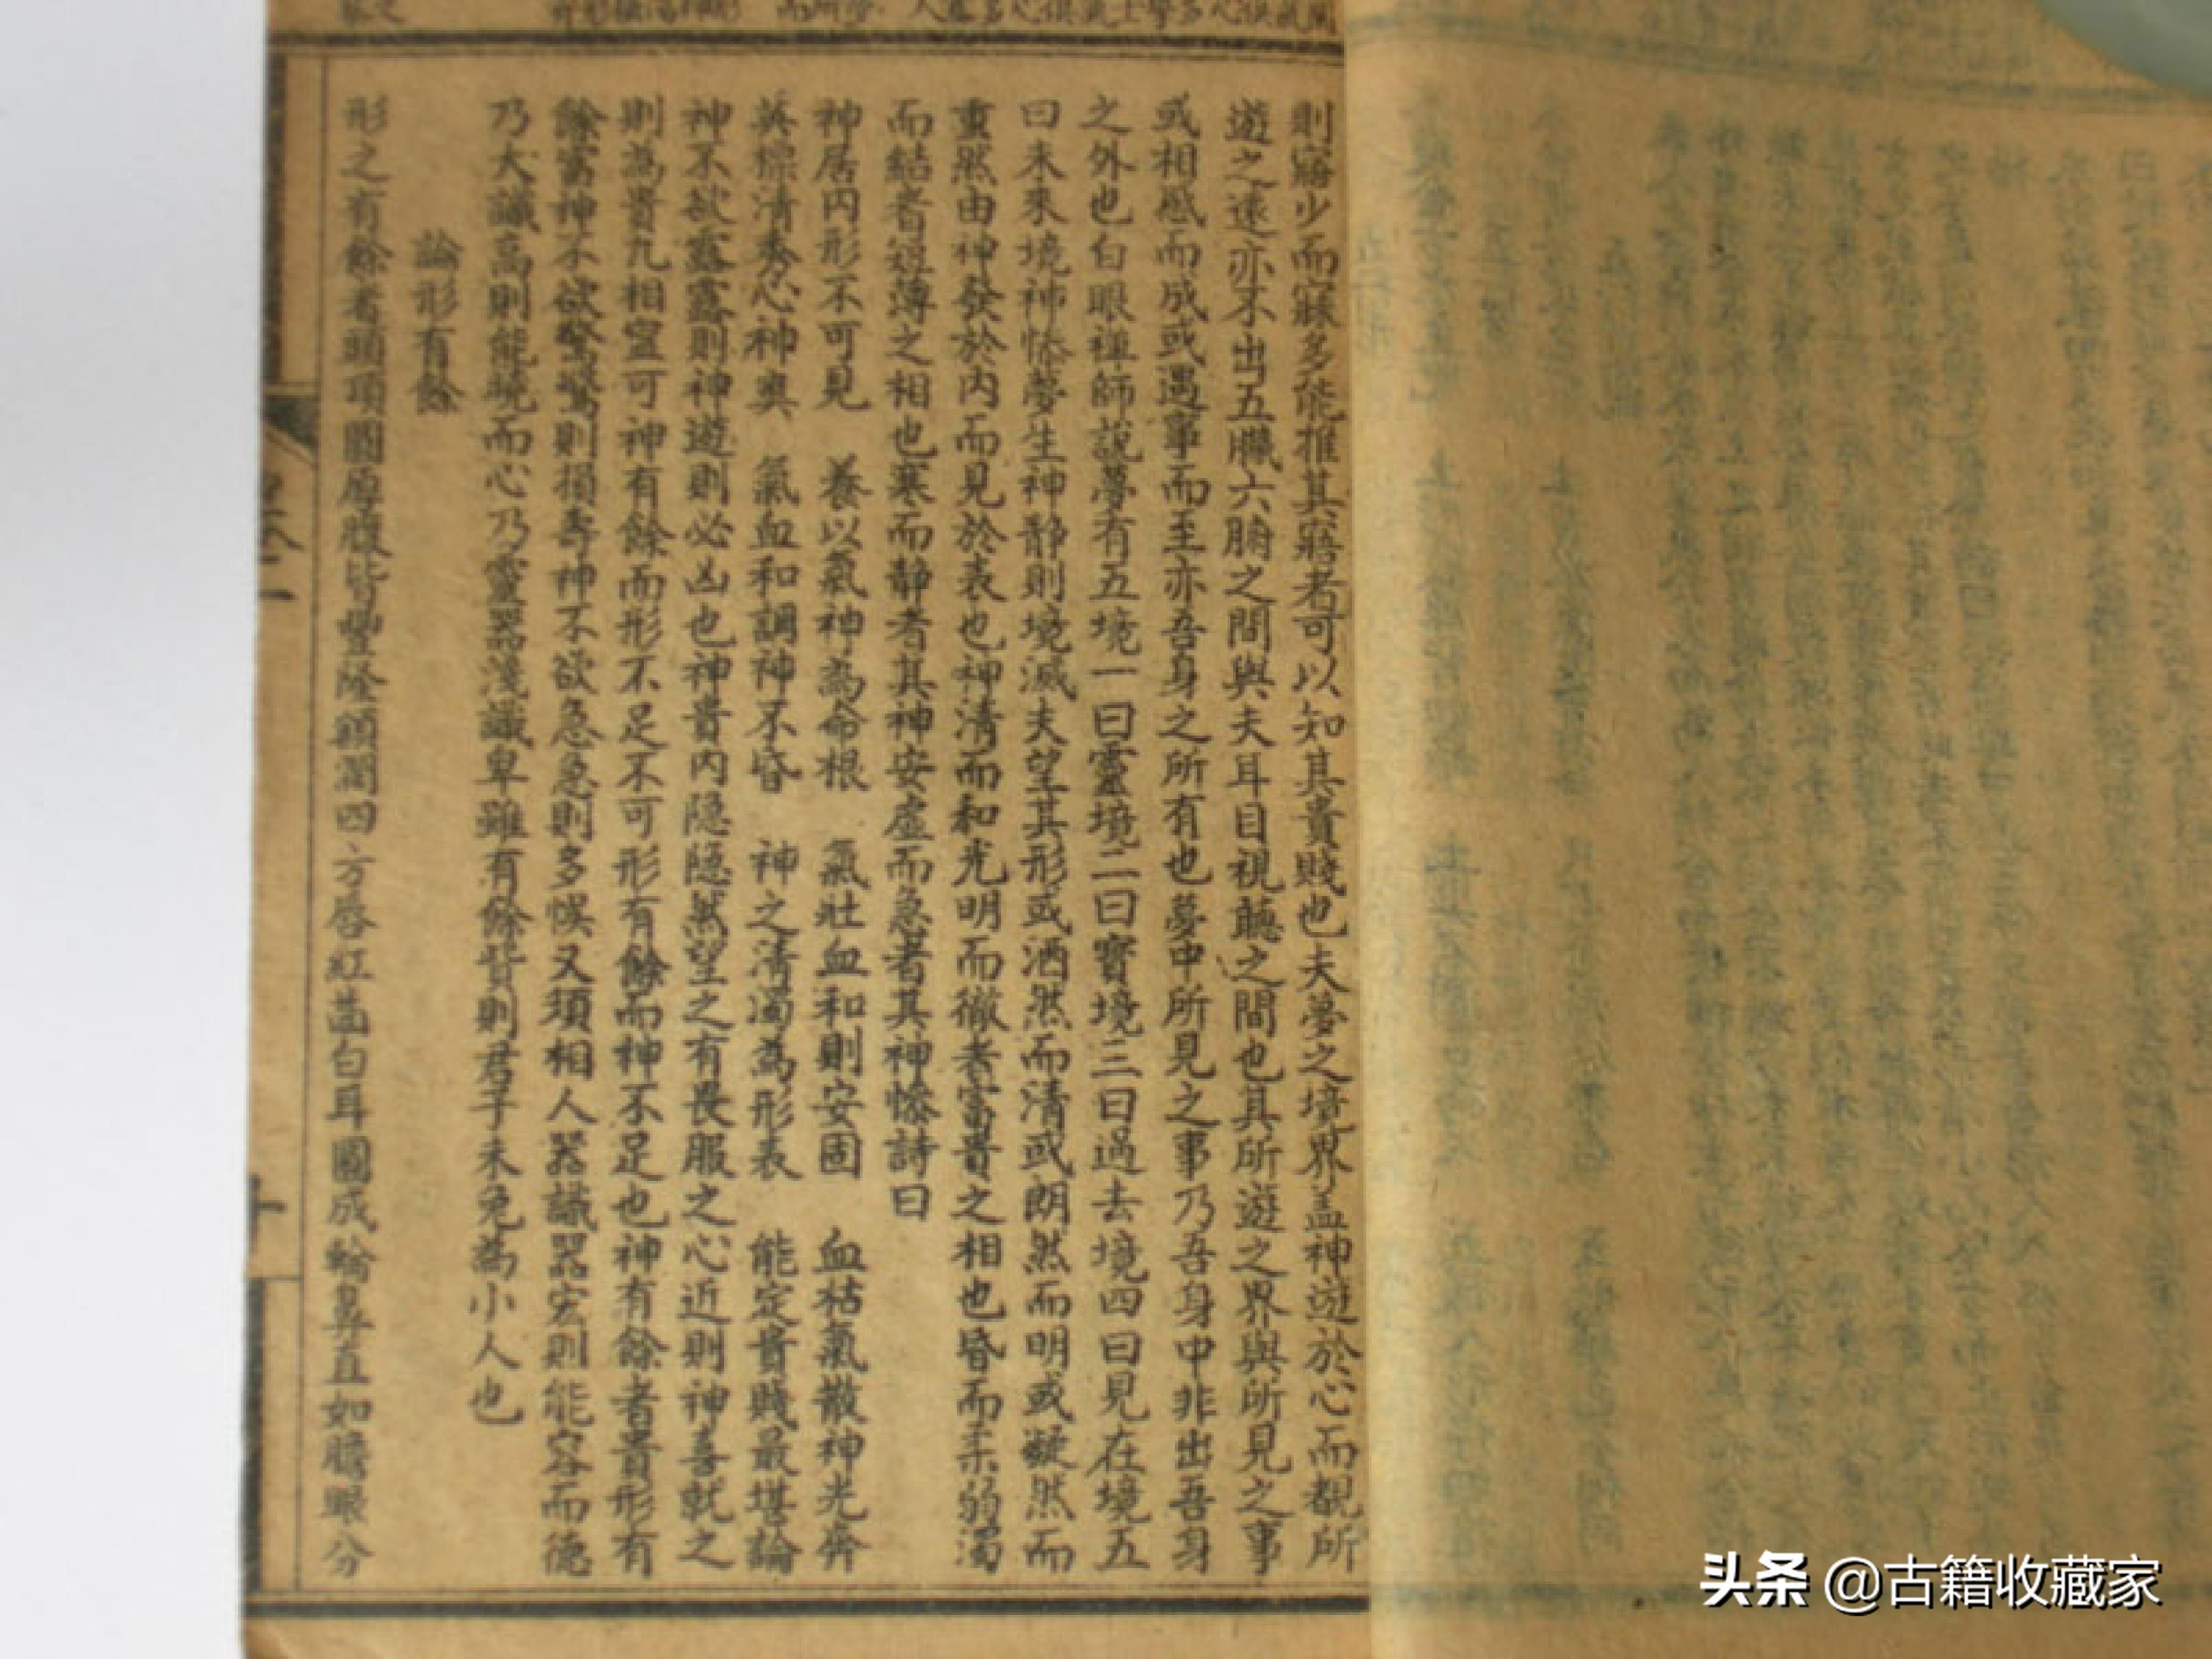 則寤少而寐多能推其寤者可以知其貴賤也夫夢之境界盖神遊於心而覩所
遊之遠亦不出五臟六腑之間與夫耳目視聽之間也其所遊之界與所見之事
或相感而成或遇事而至亦吾身之所有也夢中所見之事乃吾身中非出吾身
之外也白眼禪師說夢有五境一曰靈境二曰寶境三曰過去境四曰見在境五
曰未來境神惨夢生神靜則境滅夫望其形或洒然而清或朗然而明或凝然而
重然由神發於內而見於表也神清而和光明而徹者富貴之相也昏而柔弱濁
而結者短薄之相也寒而靜者其神安虛而急者其神惨詩曰
神居內形不可見　養以氣神為命根　氣壯血和則安固　血枯氣散神光奔
英標清秀心神爽　氣血和調神不昏　神之清濁為形表　能定貴賤最堪論
神不欲露露則神遊則必凶也神貴內隱隱然望之有畏服之心近則神喜就之
則為貴凡相寧可神有餘而形不足不可形有餘而神不足也神有餘者貴形有
餘富神不欲驚驚則損壽神不欲急急則多悞又須相人器識器宏則能容而德
乃大識高則能曉而心乃靈器淺識卑雖有餘貲則君子未免為小人也
論形有餘
形之有餘者頭項圓厚腹皆豐隆額濶四方唇紅齒白耳圓成輪鼻直如膽眼分
卷二
十
头条 @古籍收藏家